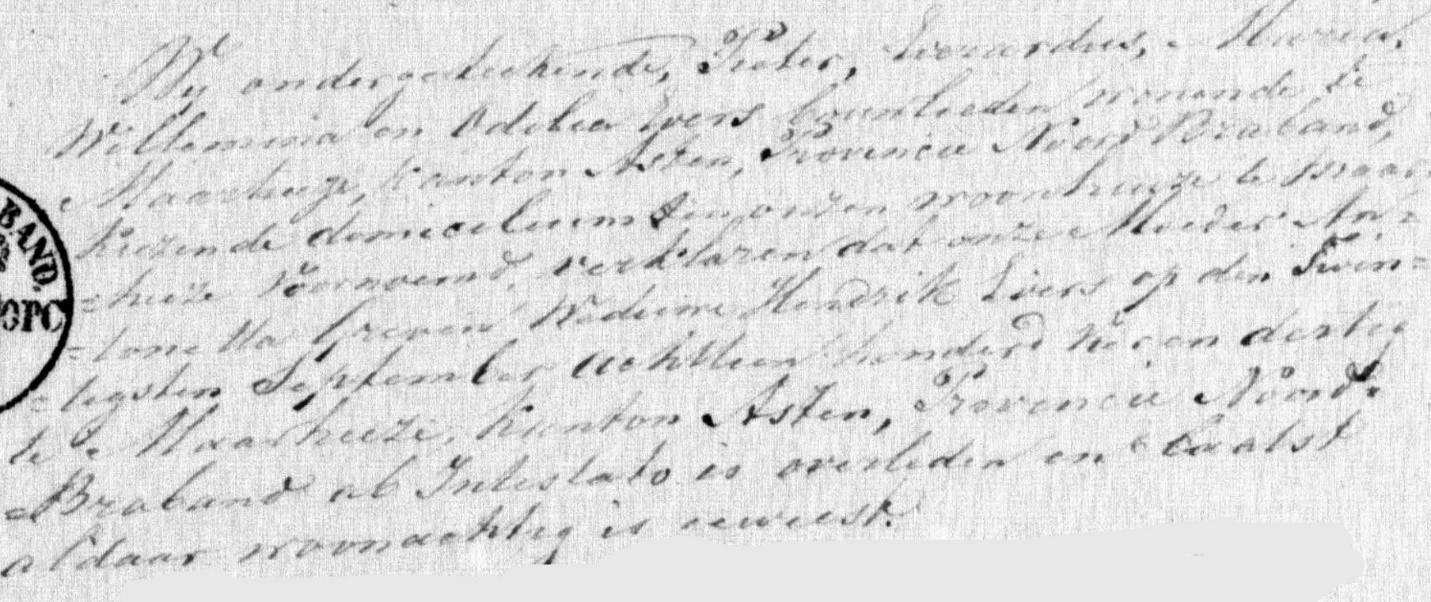 Wij ondergeteekende, Pieter, Everardus, Maria,
Willemina en Odilia Evers bouwlieden wonende te
Maarheeze, Kanton Asten, Provincie Noord Braband,
kiezende domicilium ten onzen woonhuize te Maar-
=heeze voornoemd, verklaren dat onze Moeder An,=
=tonetta Weduwe Hendrik Evers op den Twin=
=tigsten September achttien honderd vier en dertig
te Maarheeze, Kanton Asten, Provincie Noord=
=Braband ab Intestato is overleden en laatst
aldaar woonachtig is geweest.
BAND.
OPC